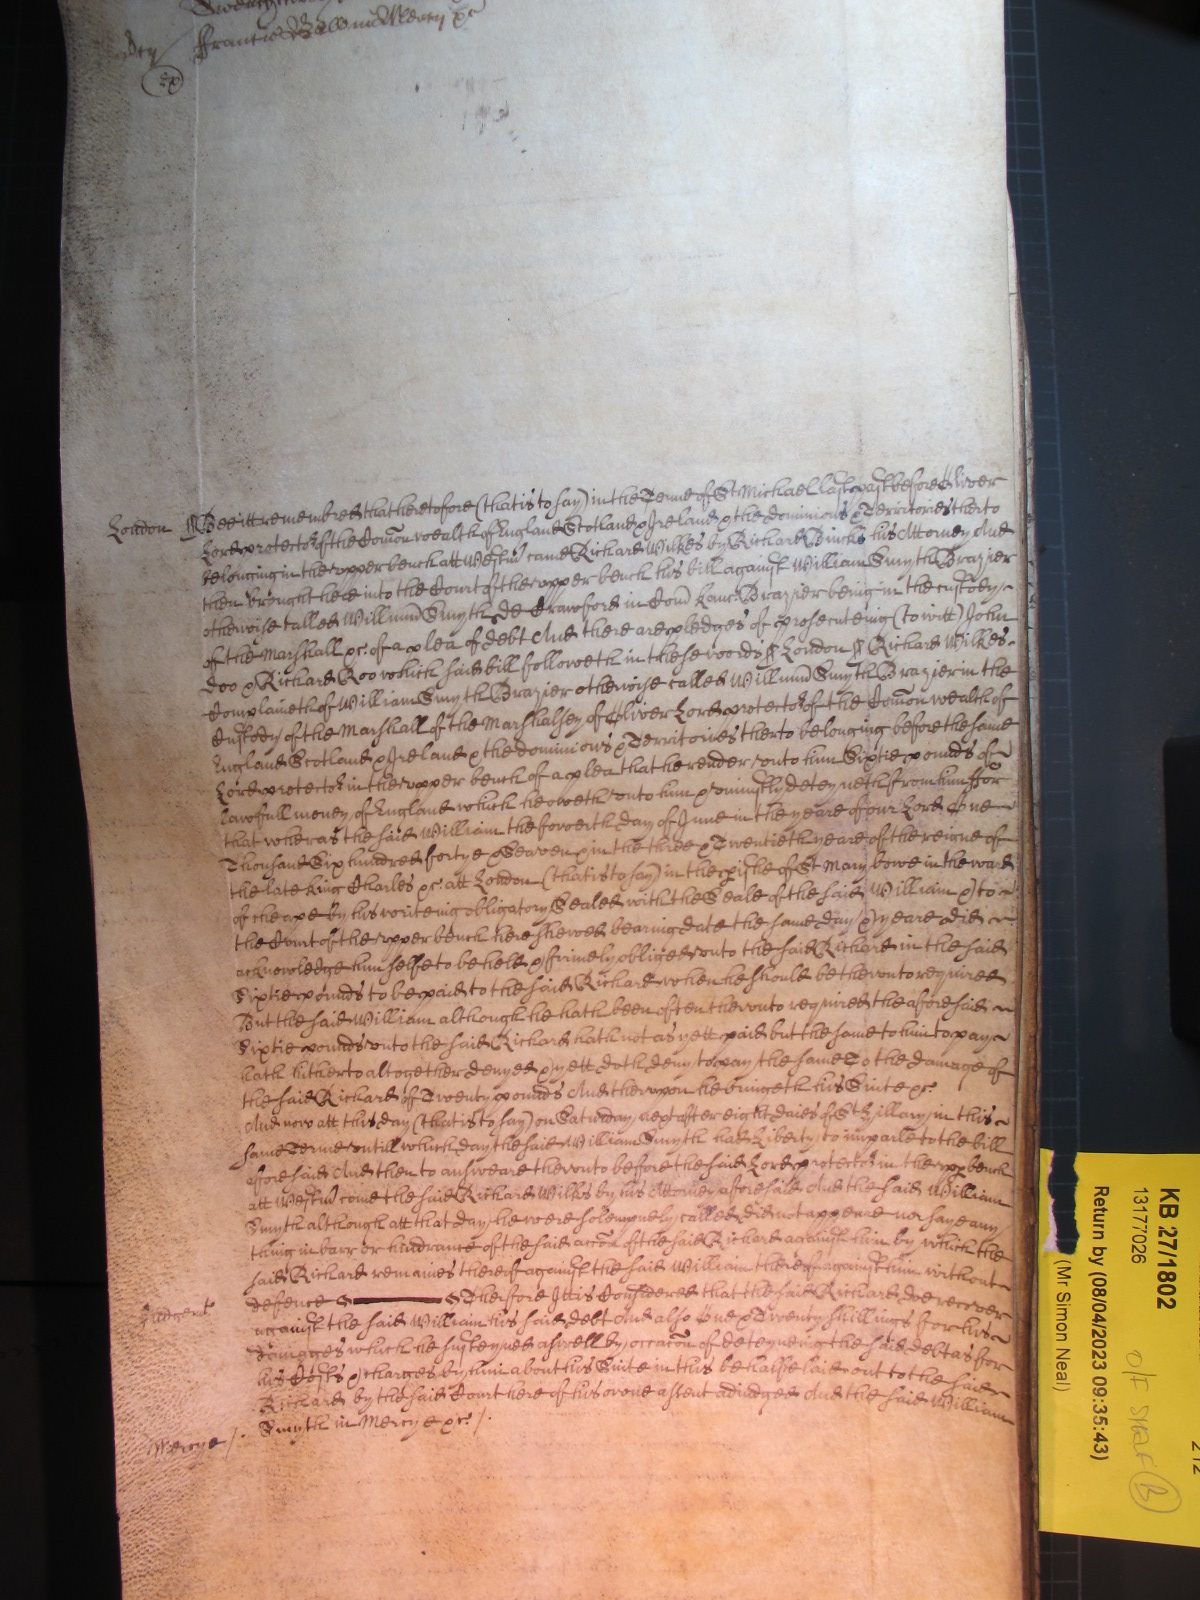 Francis Ballow in Mercy &c
London ss Bee it remembred that heretofore (that is to say) in the Terme of St Michael last past before Oliver
Lord protector of the Comon wealth of England Scotland & Ireland & the dominions & Territories therto
belonging in the upper bench att Westmr came Richard Wilkes by Richard his Attorney And
then brought here into the Court of the upper bench his bill against William Smyth Brazier
otherwise called Willmm Smyth De Crawford in Com Kanc Brazier being in the custody
of the Marshall &c of a plea of debt And there are pledges of prosecuteing (to witt) John
Doo & Richard Roo which said bill followeth in these words ss London ss Richard Wilkes
Complaineth of William Smyth Brazier otherwise called Willmm Smyth Brazier in the
Custody of the Marshall of the Marshalsey of Oliver Lord protector of the Comon wealth of
England Scotland & Ireland & the dominions & Territories therto belonging before the same
Lord protector in the upper bench of a plea that he render unto him Sixtie pounds of
lawfull money of England which he oweth unto him & uniustly deteyneth from him ffor
that wheras the said William the fowerth day of June in the yeare of our Lord One
Thousand Six hundred fortye & Seaven & in the three & Twentieth yeare of the reigne of
the late King Charles &c att London (that is to say) in the pishe of St Mary bowe in the ward
of cheape by his writeing obligatory Sealed with the Seale of the said William & to
the Court of the upper bench here shewed bearing date the same day & yeare did
acknowledge himselfe to be held & firmely obliged unto the said Richard in the said
Sixtie pounds to be paid to the said Richard when he should be therunto required
But the said William although he hath been often therunto required the aforesaid
Sixtie pounds unto the said Richard hath not as yett paid but the same to him to pay
hath hitherto altogether denyed & yett doth deny to pay the same To the damage of
the said Richard of Twenty pounds And therupon he bringeth his Suite &c
And now att this day (that is to say) on Saturday next after eight daies of St Hillary in this
same Terme untill which day the said William Smyth had Liberty to imparle to the bill
aforesaid And then to answeare therunto before the said Lord protector in the upp bench
att Westmr come the said Richard Wilkes by his Attorney aforesaid And the said William
Smyth although att that day he were solempnely called did not appeare nor say any
thing in barr or hindrance of the said accon of the said Richard against him by which the
said Richard remaines therof against the said William therof against him without
Judgent defence Therfore It is Considered that the said Richard doe recover
against the said William his said debt And also One & Twenty shillings for his
damages which he susteyned aswell by occacon of deteyneing the said debt as for
his Costs & charges by him about his Suite in this behalfe laid out to the said
Richard by the said Court here of his owne assent adiudged And the said William
Mercye Smyth in Mercye &c
KB 27/1802
13177026
O/F Staff B
Return by (08/04/2023 09:35:43)
(Mr Simon Neal)